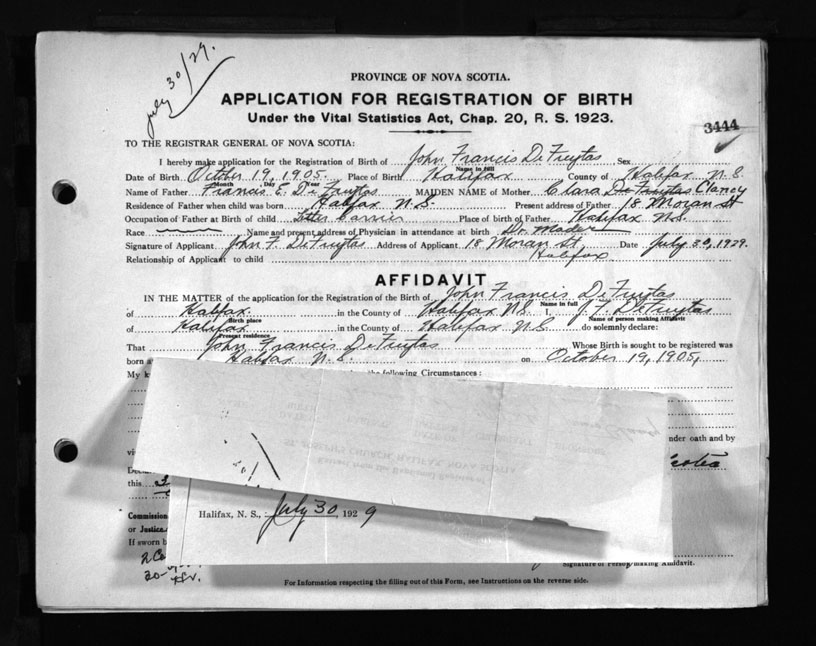 July 30/29.
PROVINCE OF NOVA SCOTIA.
APPLICATION FOR REGISTRATION OF BIRTH
Under the Vital Statistics Act, Chap. 20, R. S. 1923.
3444
TO THE REGISTRAR GENERAL OF NOVA SCOTIA:
I hereby make application for the Registration of Birth of John Francis DeFreytas Sex
Name in full
Date of Birth October 19, 1905. Place of Birth Halifax County of Halifax N.S.
Month Day Year
Name of Father Francis E. DeFreytas MAIDEN NAME of Mother Clara DeFreytas Clancy
Residence of Father when child was born Halifax N.S. Present address of Father 18 Moran St
Occupation of Father at Birth of child Letter Carrier Place of birth of Father Halifax N.S.
Race Name and present address of Physician in attendance at birth Dr. Mader
Signature of Applicant John F. DeFreytas Address of Applicant 18 Moran St, Date July 30, 1929.
Relationship of Applicant to child Halifax
AFFIDAVIT
IN THE MATTER of the application for the Registration of the Birth of John Francis DeFreytas
Name in full
of Halifax. in the County of Halifax N.S. I, J. F. DeFreytas
Birth place Name of person making Affidavit
of Halifax in the County of Halifax N.S. do solemnly declare:
Present residence
That John Francis DeFreytas Whose Birth is sought to be registered was
born a Halifax N.S. on October 19, 1905,
My k the following Circumstances :
under oath and by
this
Commission
or Justice
If sworn b
Halifax, N. S., July 30, 1929
Signature of Person making Affidavit.
For Information respecting the filling out of this Form, see Instructions on the reverse side.